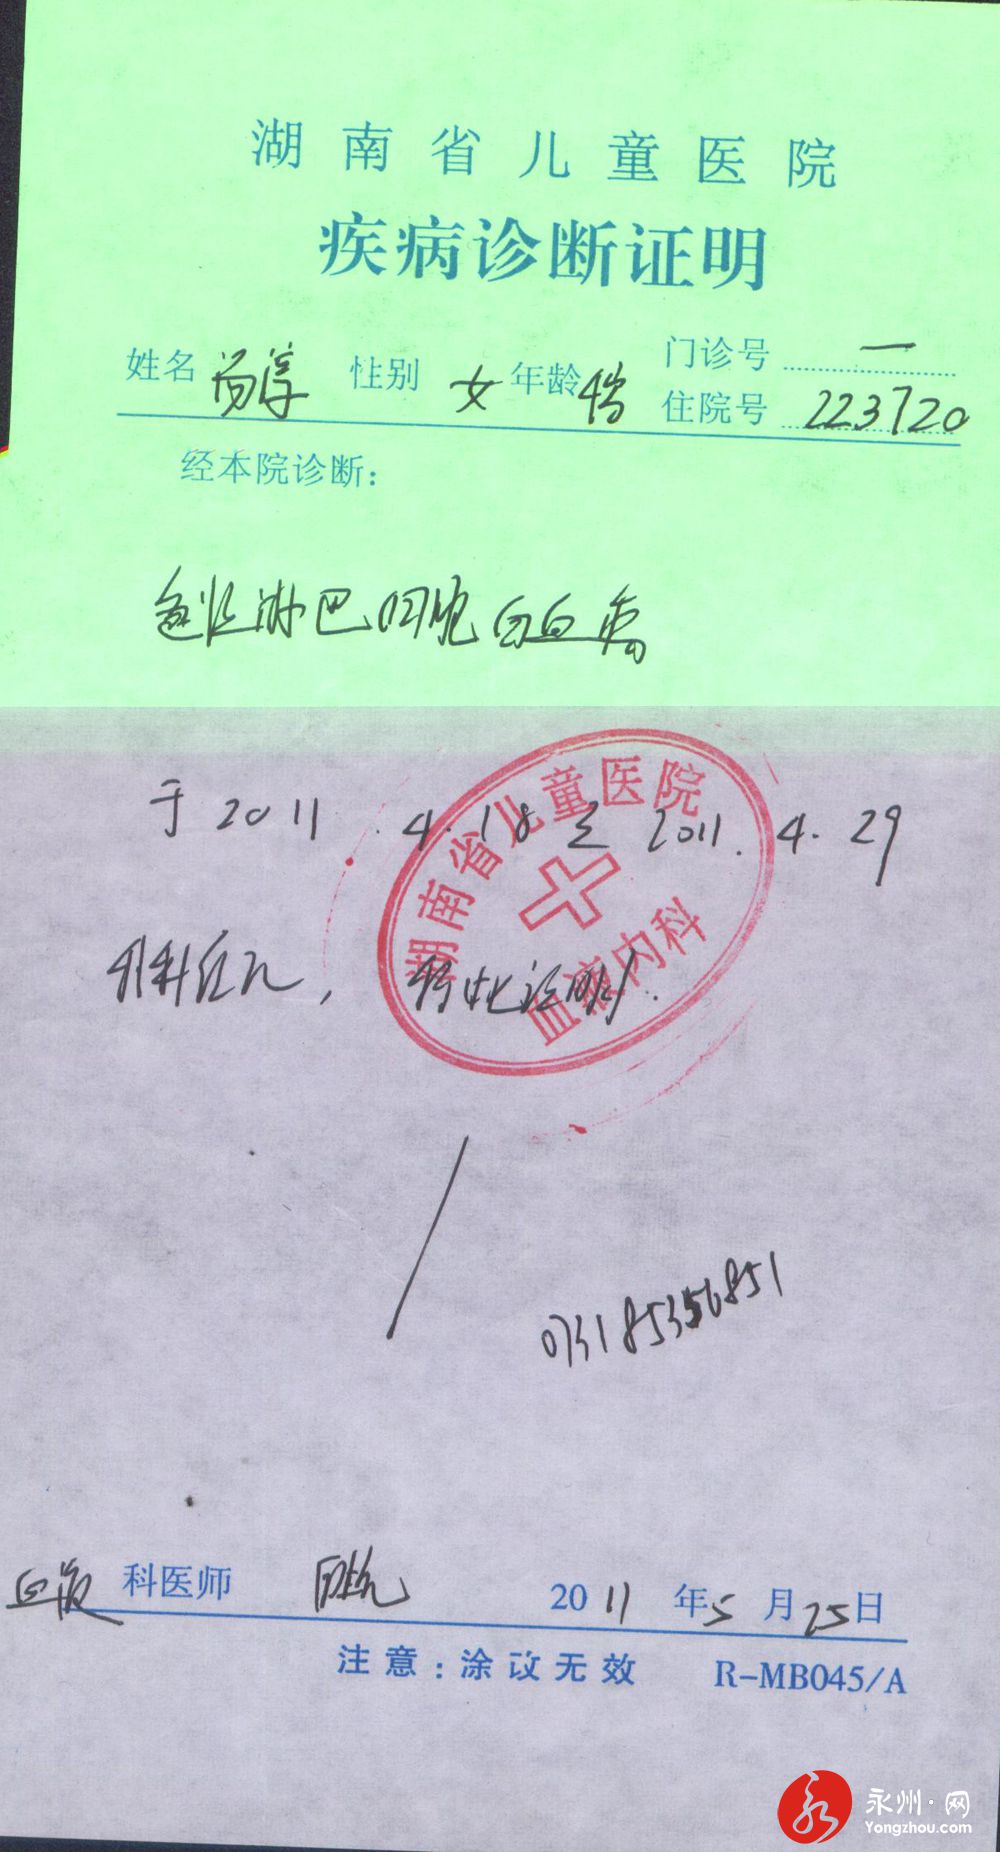 湖南省儿童医院
疾病诊断证明
姓名 性别 女 年龄 4岁 门诊号 一
住院号 223720
经本院诊断:
急性淋巴细胞白血病
于2011.4.18至2011.4.29
我科住院,特此证明.
湖南省儿童医院
血液内科
073185356851
血液 科医师 2011年5月25日
注意:涂改无效 R-MB045/A
永州·网
Yongzhou.com